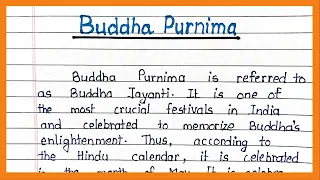 Buddha Purnima
Buddha Purnima is referred to
as Buddha Jayanti. It is one of
the most crucial festivals in India
and celebrated to memorize Buddha's
enlightenment. Thus, according to
the Hindu calendar, it is celebrated
in the month of May. It is celebr